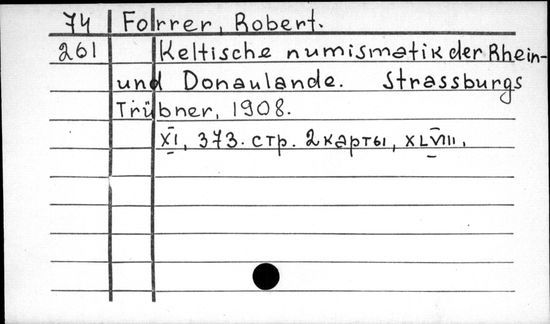 74 Forrer, Robert.
261 Keltische numismatik der Rhein-
und Donaulande. Strassburgs
Trübner, 1908.
XI, 373. стр. 2 карты, XLVIII.